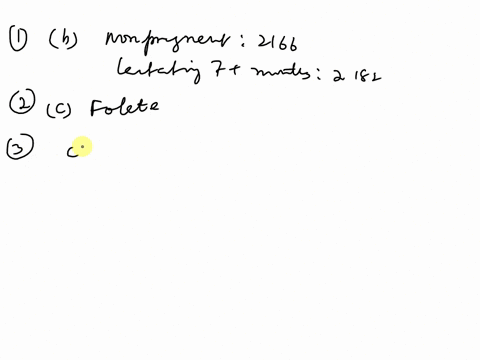 ① (b) nonpregnent : 2166
lactating 7+ months : 2182
② (c) Folete
③ c